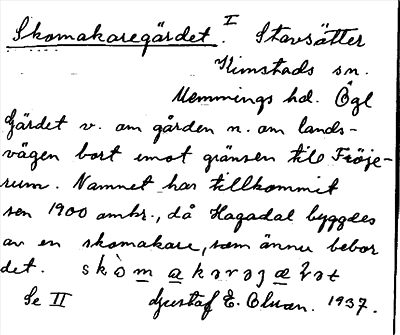 Skomakaregärdet. I Stavsätter
Kimstads sn.
Memmings hd. Ögl
Gärdet v. om gården n. om lands-
vägen bort emot gränsen till Fröje-
rum. Namnet har tillkommit
sen 1900 ambr., då Hagadal byggdes
av en skomakare, som ännu bebor
det.
Se II Gustaf E. Olsson. 1937.